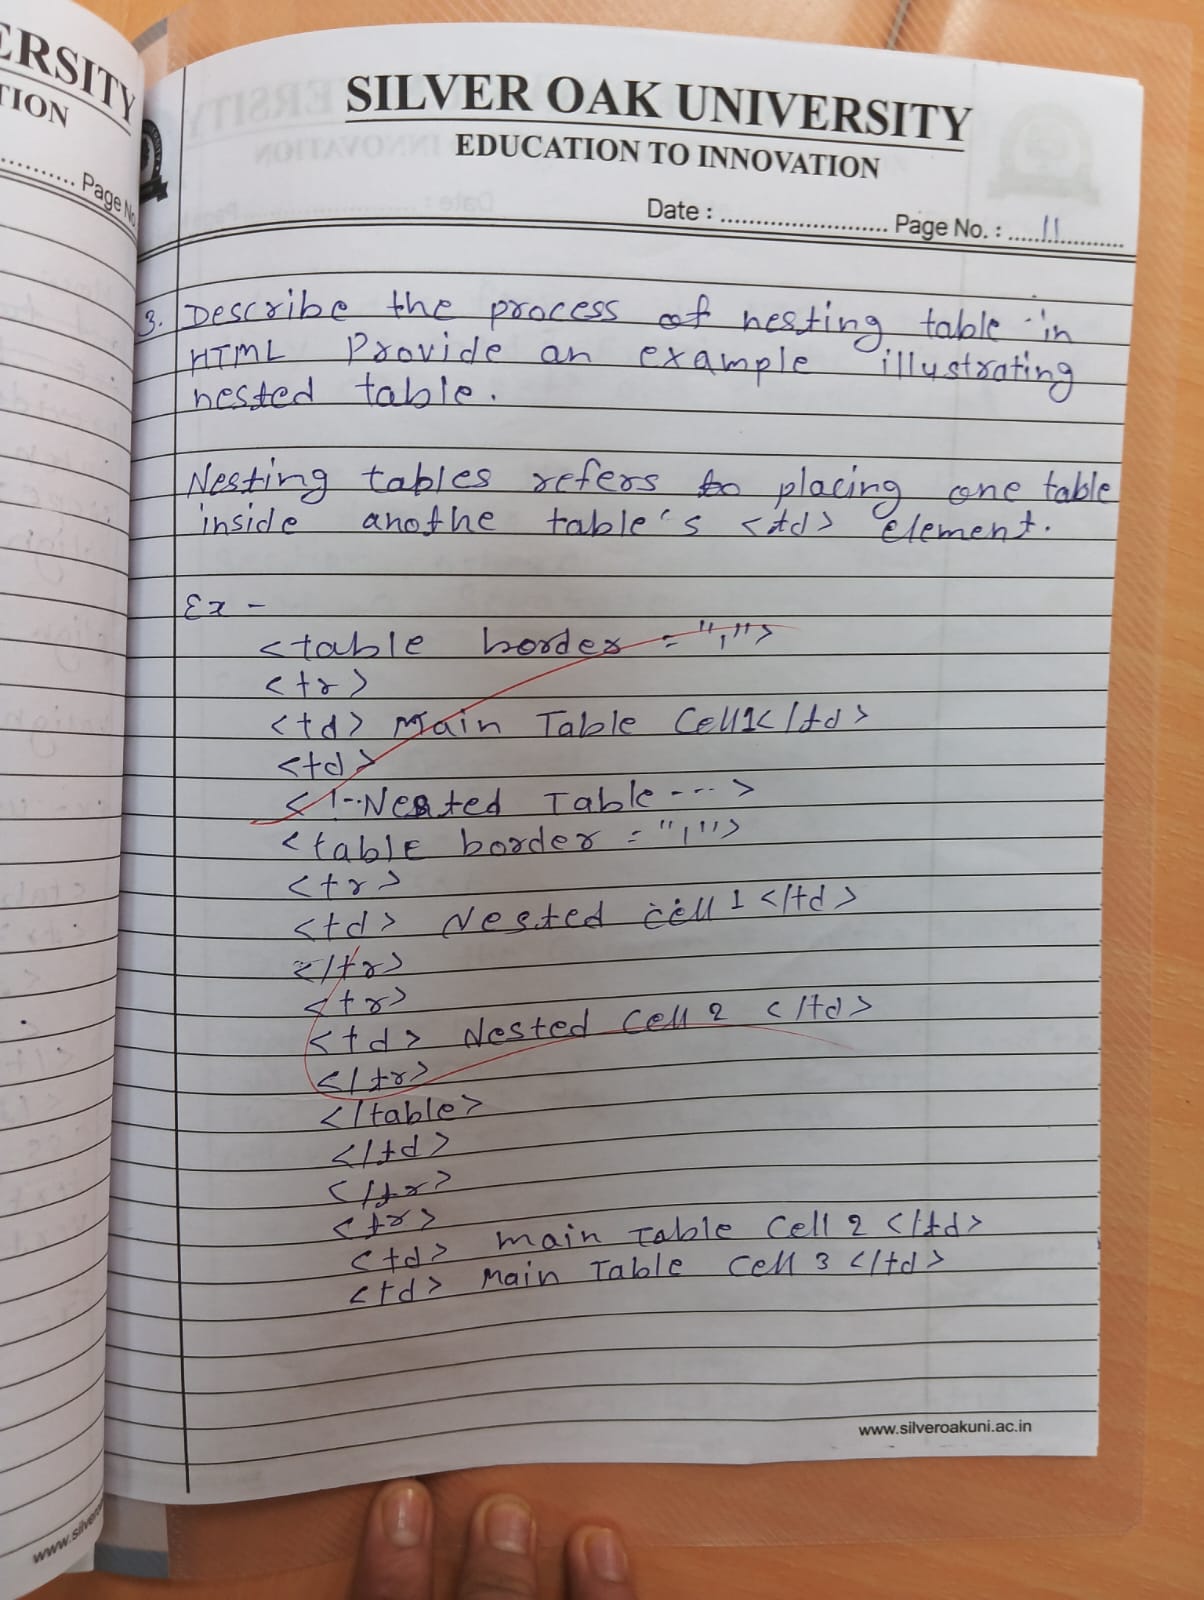 ERSITY
TION
Page No
SILVER OAK UNIVERSITY
EDUCATION TO INNOVATION
Date : ........................ Page No. : .....11............
3. Describe the process of nesting table in
HTML Provide an example illustrating
nested table.
Nesting tables refers to placing one table
inside anothe table's <td> element.
Ex -
<table border = "1">
<tr>
<td> Main Table Cell1</td>
<td>
<!--Nested Table--->
<table border = "1">
<tr>
<td> Nested cell 1 </td>
</tr>
<tr>
<td> Nested Cell 2 </td>
</tr>
</table>
</td>
</tr>
<tr>
<td> main Table Cell 2 </td>
<td> Main Table Cell 3 </td>
www.silveroakuni.ac.in